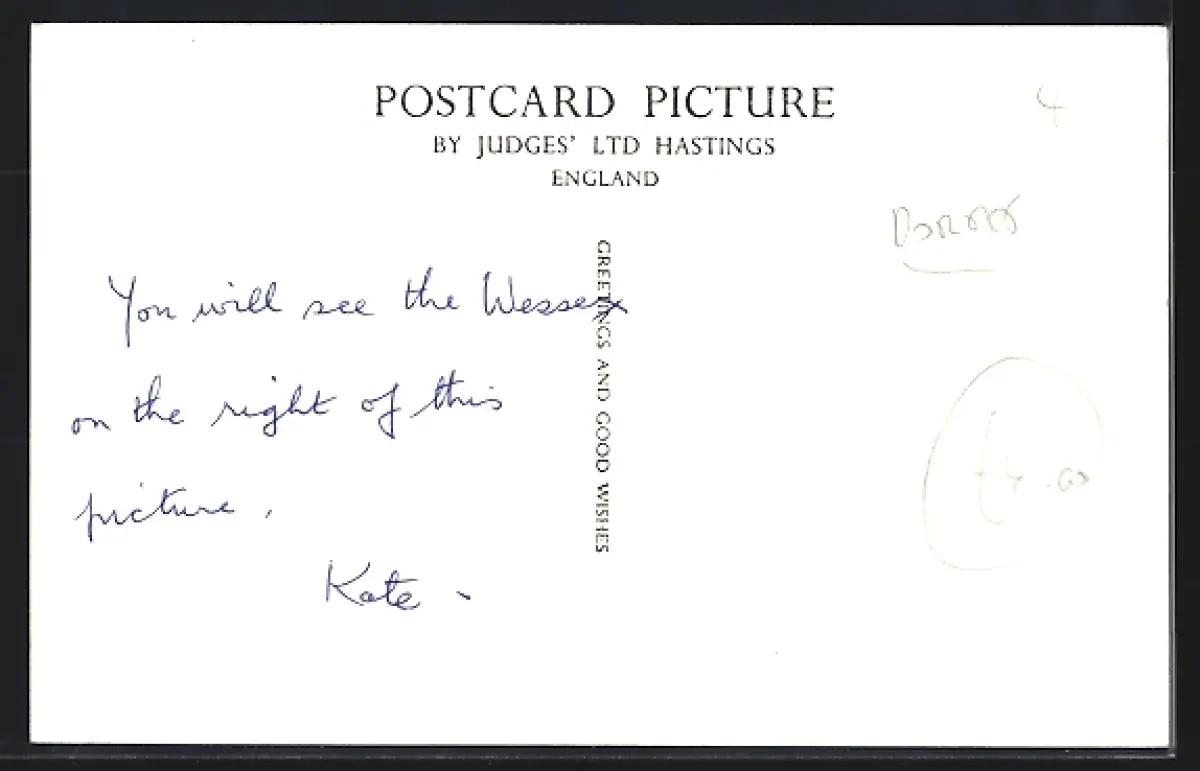 POSTCARD PICTURE
BY JUDGES' LTD HASTINGS
ENGLAND
4
GREETINGS AND GOOD WISHES
You will see the Wessex
on the right of this
picture.
Kate.